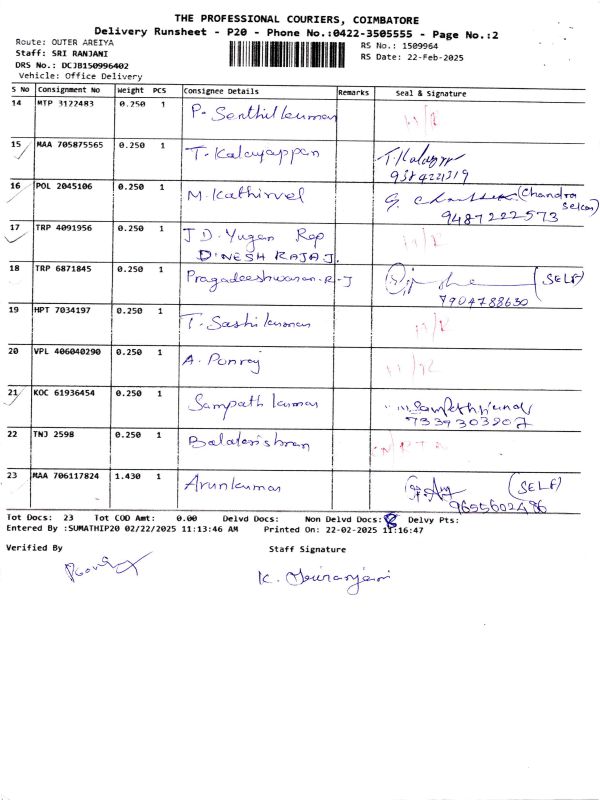 THE PROFESSIONAL COURIERS, COIMBATORE
Delivery Runsheet - P20 - Phone No.:0422-3505555 - Page No.:2
Route: OUTER AREIYA
Staff: SRI RANJANI
DRS No.: DCJB150996402
Vehicle: Office Delivery
RS No.: 1509964
RS Date: 22-Feb-2025
S No Consignment No Weight PCS Consignee Details Remarks Seal & Signature
14 MTP 3122483 0.250 1 P. Senthil kumar
15 MAA 705875565 0.250 1 T. Kalayappan
9384221319
16 POL 2045106 0.250 1 M. Kathirvel (Chandra
9487222573
17 TRP 4091956 0.250 1 J D. Yugan Rep
DINESH RAJA J.
18 TRP 6871845 0.250 1 Pragadeeshwaran. R. J (SELF)
7904788630
19 HPT 7034197 0.250 1 T. Sashikumar
20 VPL 406040290 0.250 1 A. Ponraj
21 KOC 61936454 0.250 1 Sampath kumar
7339303207
22 TNJ 2598 0.250 1
23 MAA 706117824 1.430 1 Arunkumar (SELF)
9655602496
Tot Docs: 23 Tot COD Amt: 0.00 Delvd Docs: Non Delvd Docs: 8 Delvy Pts:
Entered By :SUMATHIP20 02/22/2025 11:13:46 AM Printed On: 22-02-2025 11:16:47
Verified By Staff Signature